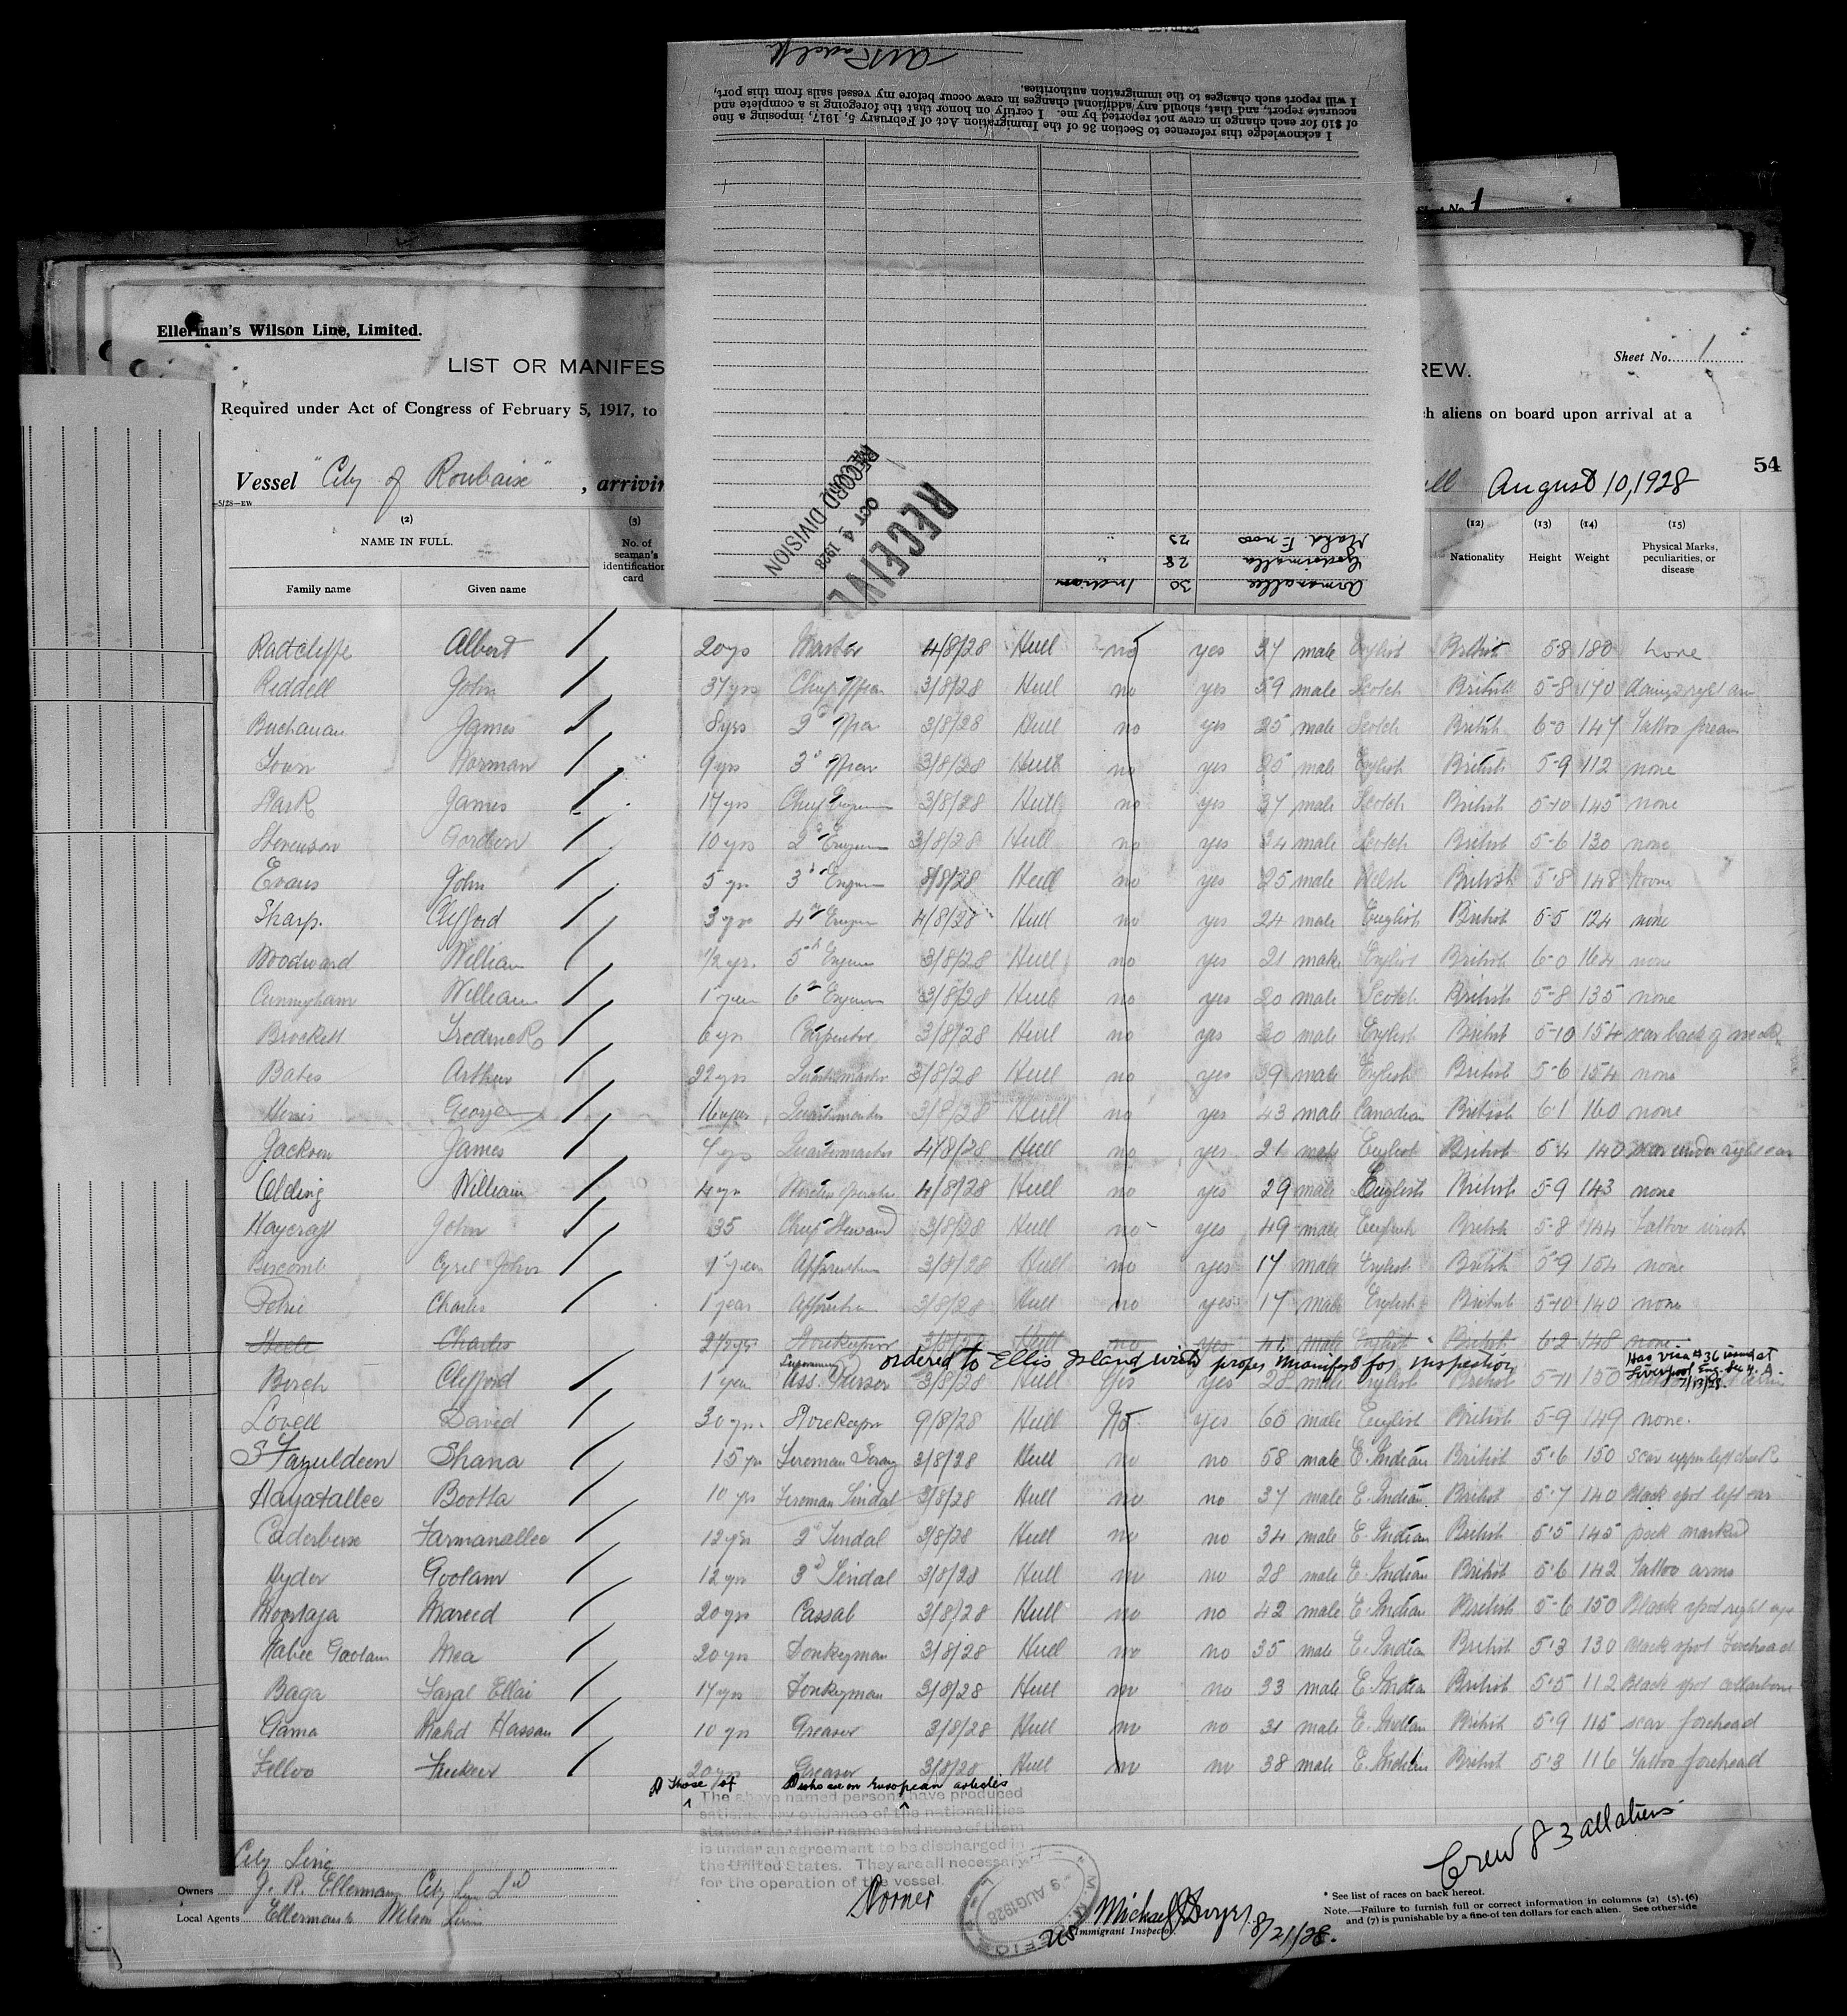 I acknowledge this reference to Section 36 of the Immigration Act of February 5, 1917, imposing a fine
of $10 for each change in crew not reported by me. I certify on honor that the foregoing is a complete and
accurate report, and that, should any additional changes in crew occur before my vessel sails from this port,
I will report such changes to the immigration authorities.
Sheet No. 1
Ellerman's Wilson Line, Limited.
LIST OR MANIFES REW.
Sheet No. 1
Required under Act of Congress of February 5, 1917, to h aliens on board upon arrival at a
54
Vessel "City of Roubaix", arrivin August 10, 1928
RECEIVE
OCT 4 1928
RECORD DIVISION
30 Indian
28 "
Mahd 23 "
(2) (3) (12) (13) (14) (15)
NAME IN FULL. No. of seaman's identification card Nationality Height Weight Physical Marks, peculiarities, or disease
Family name Given name
Radcliffe Albert 20 yrs Master 4/8/28 Hull no yes 37 male English British 5-8 180 none
Riddell John 37 yrs Chief Officer 3/8/28 Hull no yes 59 male Scotch British 5-8 170 right arm
Buchanan James 8 yrs 2d Officer 3/8/28 Hull no yes 25 male Scotch British 6-0 147 Tattoo forearm
Norman 9 yrs 3d Officer 3/8/28 Hull no yes 25 male English British 5-9 112 none
Park James 17 yrs Chief Engineer 3/8/28 Hull no yes 37 male Scotch British 5-10 145 none
Stevenson Gordon 10 yrs 2d Engineer 3/8/28 Hull no yes 34 male Scotch British 5-6 130 none
Evans John 5 yrs 3d Engineer 8/8/28 Hull no yes 25 male Welsh British 5-8 148 none
Sharp. Clifford 3 yrs 4th Engineer 4/8/28 Hull no yes 24 male English British 5-5 124 none
Woodward William 1/2 yr. 5th Engineer 3/8/28 Hull no yes 21 male English British 6-0 164 none
Cunningham William 1 year 6th Engineer 3/8/28 Hull no yes 20 male Scotch British 5-8 135 none
Brockett Frederick 6 yrs Carpenter 3/8/28 Hull no yes 20 male English British 5-10 154 scar back of neck
Bates Arthur 22 yrs Quartermaster 3/8/28 Hull no yes 39 male English British 5-6 154 none
George 16 years Quartermaster 3/8/28 Hull no yes 43 male Canadian British 6-1 160 none
Jackson James 7 yrs Quartermaster 4/8/28 Hull no yes 21 male English British 5-4 140 scar under right ear
Olding William 4 yrs Wireless operator 4/8/28 Hull no yes 29 male English British 5-9 143 none
Haycraft John 35 Chief Steward 3/8/28 Hull no yes 49 male English British 5-8 144 Tattoo wrist
Biscomb Cyril John 1 year Apprentice 3/8/28 Hull no yes 17 male English British 5-9 154 none
Petrie Charles 1 year Apprentice 3/8/28 Hull no yes 17 male English British 5-10 140 none
Steele Charles 2 1/2 yrs Storekeeper 3/8/28 Hull no yes 41 male English British 6-2 148 none
ordered to Ellis Island with proper manifest for inspection
Has visa #36 issued at Liverpool Eng. 7/13/28.
Birch Clifford 1 year Supernumary Ass. Purser 3/8/28 Hull yes yes 28 male English British 5-11 150
Lovell David 30 yrs. Storekeeper 9/8/28 Hull No yes 60 male English British 5-9 149 none.
S Fazuldeen Shana 15 yrs Fireman Serang 3/8/28 Hull no no 58 male E. Indian British 5-6 150 scar upper left cheek
Hayatallee Bootta 10 yrs Fireman Tindal 3/8/28 Hull no no 37 male E. Indian British 5-7 140 Black spot left ear
Caderbux Farmanallee 12 yrs 2d Tindal 3/8/28 Hull no no 34 male E. Indian British 5-5 145 pock marked
Hyder Goolam 12 yrs 3d Tindal 3/8/28 Hull no no 28 male E. Indian British 5-6 142 Tattoo arms
Moortaja Mareed 20 yrs Cassab 3/8/28 Hull no no 42 male E. Indian British 5-6 150 Black spot right eye
Nabee Goolam Mea 20 yrs Donkeyman 3/8/28 Hull no no 35 male E. India British 5-3 130 Black spot forehead
Baga Fazal Ellai 17 yrs Donkeyman 3/8/28 Hull no no 33 male E. India British 5-5 112 Black spot collarbone
Gama Mahd Hassan 10 yrs Greaser 3/8/28 Hull no no 31 male E. Indian British 5-9 115 scar forehead
Felloo Fukeer 20 yrs Greaser 3/8/28 Hull no no 38 male E. Indian British 5-3 116 Tattoo forehead
Those of who are on European articles
The above named persons have produced
satisfactory evidence of the nationalities
stated after their names and none of them
is under an agreement to be discharged in
the United States. They are all necessary
for the operation of the vessel.
Crew 83 all aliens
City Line
Owners J. R. Ellerman City Line Ld
Local Agents Ellerman's Wilson Line
9 AUG 1928
Michael J Dwyer 8/21/28.
Immigrant Inspector.
* See list of races on back hereof.
Note.—Failure to furnish full or correct information in columns (2) (5), (6)
and (7) is punishable by a fine of ten dollars for each alien. See other side